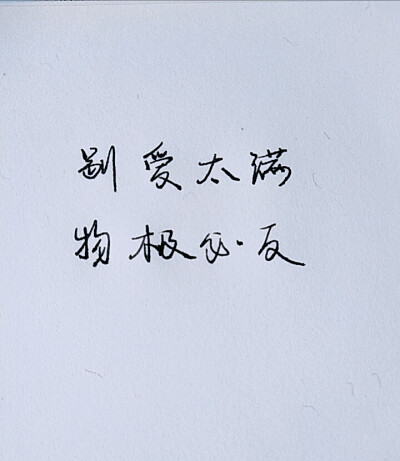 别爱太满
物极必反